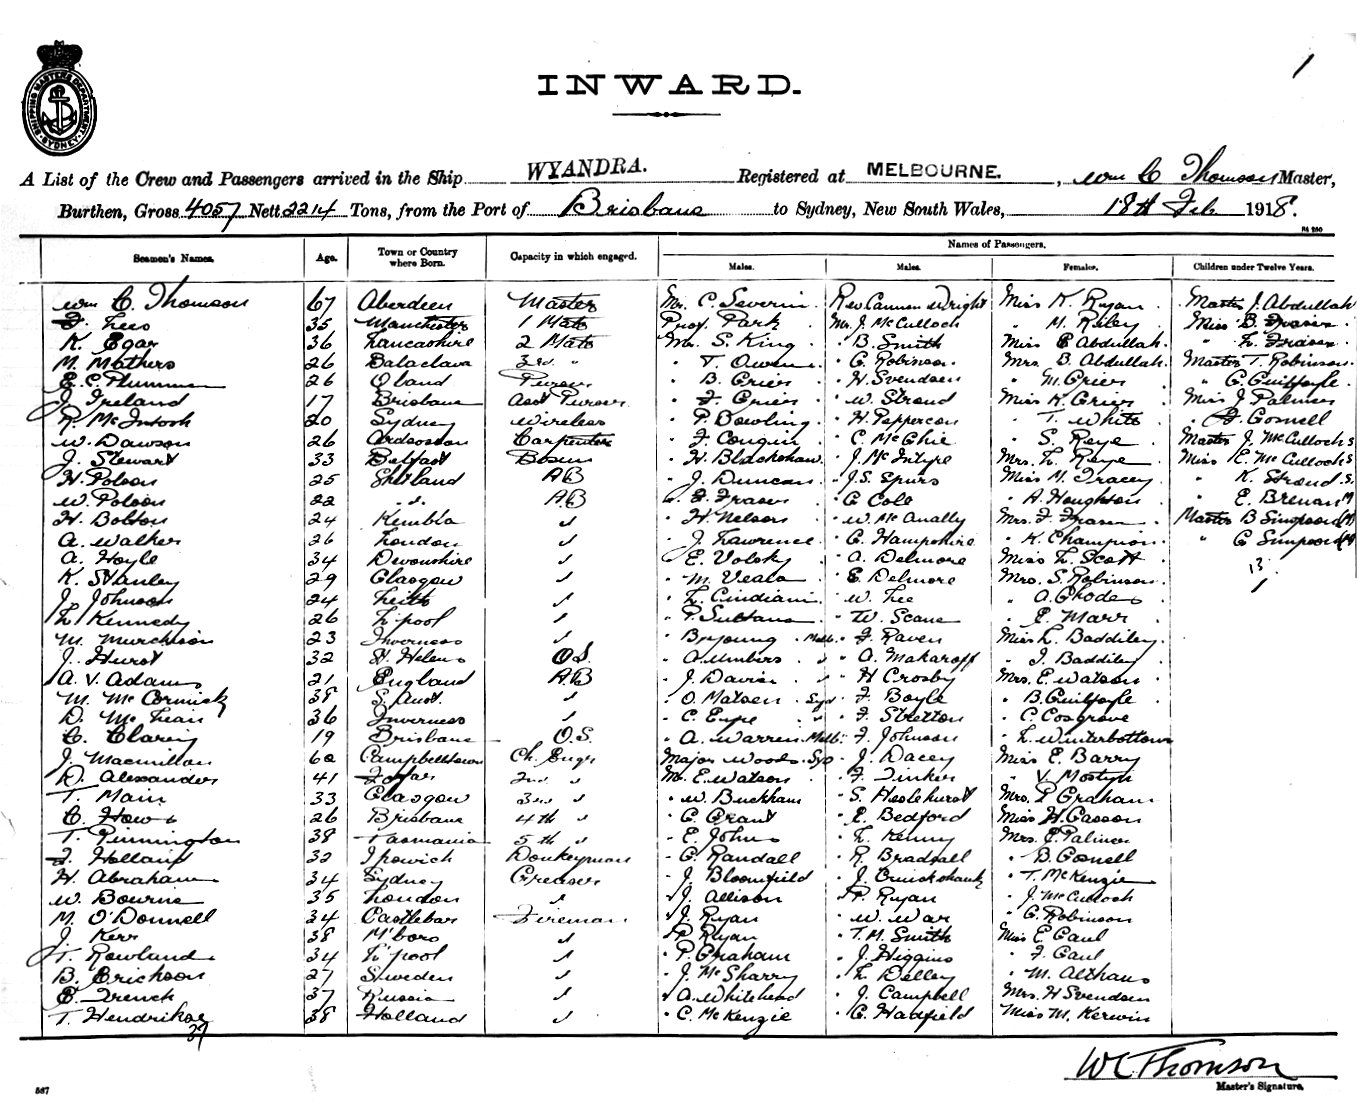 1
SHIPPING MASTERS DEPARTMENT SYDNEY.
INWARD.
A List of the Crew and Passengers arrived in the Ship WYANDRA. Registered at MELBOURNE., Wm C Thomson Master,
Burthen, Gross 4057 Nett 2214 Tons, from the Port of Brisbane to Sydney, New South Wales, 18th Feb 1918.
Seamen's Names. Age. Town or Country where Born. Capacity in which engaged. Names of Passengers.
Males. Males. Females. Children under Twelve Years.
Wm C. Thomson 67 Aberdeen Master Mr. C. Severin Rev Cannon Wright Miss K. Ryan Master J. Abdullah
F. Lees 35 Manchester 1 Mate Prof. Park Mr. J. McCulloch " M. Riley Miss B. Fraser
K. Egar 36 Lancashire 2 Mate Mr. S. King " B. Smith Miss E Abdullah " L. Fraser
M. Mathers 26 Balaclava 3rd " " T. Owen " G. Robinson Mrs. B. Abdullah Master T. Robinson
E. C. Plummer 26 Oland Purser " B. Grier " H. Svendsen " M. Grier " G. Guilfoyle
J. Ireland 17 Brisbane Asst Purser " F. Grier " W. Stroud Miss K. Grier Miss J. Palmer
R McIntosh 20 Sydney Wireless " P. Dowling " H. Peppercon " T. White " F. Gosnell
W. Dawson 26 Ardrossan Carpenter " F. Cougin " C. McGhie " S. Raye Master J. McCulloch S
J. Stewart 33 Belfast Bosun " H. Blackshaw " J. McIntyre Mrs. L. Raye Miss E. McCulloch S
H. Poleson 25 Shetland AB " J. Duncan " J. S. Spurs Miss M. Tracey " K. Stroud S.
W. Poleson 22 " AB " F Fraser " G Cole " A. Houghton " E. Brenan M
H. Bolton 24 Kembla " " H. Nelson " W. McAnally Mrs. F. Fraser Master B Simpson (M
A. Walker 26 London " " J. Lawrence " G. Hampshire " K. Champion " G Simpson (M
A. Hoyle 34 Devonshire " " E. Volsky " A. Delmore Miss L. Scott 13
K. Stanley 29 Glasgow " " M. Veale " E. Delmore Mrs. S. Robinson
J. Johnson 24 Leith " " L. Cindiani " W. Lee " A. Rhodes
L Kennedy 26 L'pool " " P. Sultana " W. Scane " E. Marr
M. Murchison 23 Inverness " " B. Young Melb " F. Raven Miss L. Baddiley
J. Hurst 32 St Helens O.S. " A. Umbers " " A. Makaroff " J. Baddiley
A. V. Adams 21 England AB " J. Davin " " H Crosby Mrs. E. Watson
M. McCormick 38 S. Aust. " " O. Matson Syd " F. Boyle " B. Guilfoyle
D. McLean 36 Inverness " " C. Eyre " " F. Stretton " C. Cosgrove
C. Clarey 19 Brisbane O.S. " A. Warren Melb. " F. Johnson " L. Winterbottom
J. Macmillan 60 Campbeltown Ch. Engr Major Woods Syd " J. Dacey Miss E. Barry
D. Alexander 41 Forfar 2nd " Mr. E. Watson " F. Tinker " V. Mostyn
T. Main 33 Glasgow 3rd " " W. Buckham " S. Haslehurst Mrs. P Graham
C. Howe 26 Brisbane 4th " " G. Grant " E. Bedford Miss H. Casson
T. Pinnington 38 Tasmania 5th " " E. Johns " L. Kenny Mrs. E. Palmer
J. Holland 32 Ipswich Donkeyman " G. Randall " R. Bradsall " B. Gosnell
H. Abraham 34 Sydney Greaser " J. Bloomfield " J. Cruickshank " T. McKenzie
W. Bourne 35 London " " J. Allison " P. Ryan " J. McCulloch
M. O'Donnell 34 Castlebar Fireman " J. Ryan " W. War " G. Robinson
J. Kerr 38 M'boro " " P. Ryan " T. M. Smith Miss E. Gaul
T. Rowland 34 L'pool " " P. Graham " J. Higgins " F. Gaul
B. Erickson 27 Sweden " " J. McSharry " L. Delley " M. Althaus
E. French 37 Russia " " A. Whitehead " J. Campbell Mrs. H Svendsen
T. Hendrikse 38 Holland " " C. McKenzie " G. Hadfield Miss M. Kerwin
37
WC Thomson
Master's Signature.
567